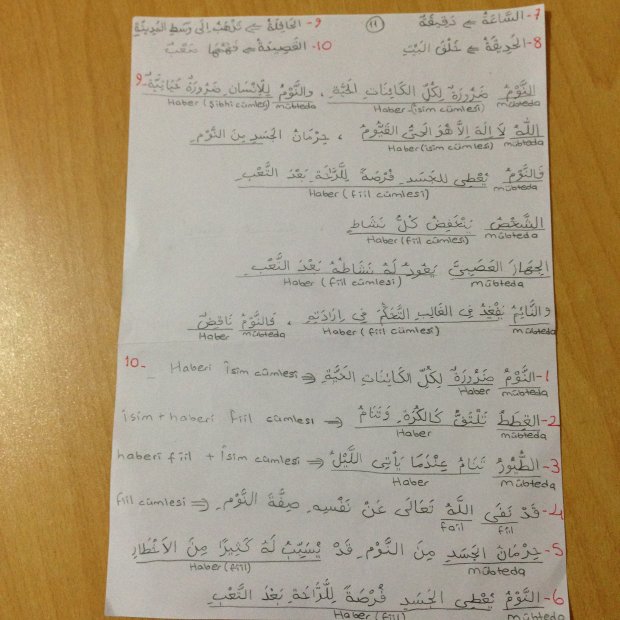 7- السَّاعَةُ ⇐ دَقِيقَةٌ (١١) 9- الحَافِلَةُ ⇐ تَذْهَبُ إِلَى وَسَطِ المَدِينَةِ
8- الحَدِيقَةُ ⇐ خَلْفَ البَيْتِ 10- القَصِيدَةُ ⇐ فَهْمُهَا صَعْبٌ
9- النَّوْمُ ضَرُورَةٌ لِكُلِّ الكَائِنَاتِ الحَيَّةِ ، والنَّوْمُ لِلْإِنْسَانِ ضَرُورَةٌ حَيَاتِيَّةٌ
mübteda Haber (isim cümlesi) mübteda Haber (Şibhi cümlesi)
اللَّهُ لَا إِلَهَ إِلَّا هُوَ الحَيُّ القَيُّومُ ، حِرْمَانُ الجَسَدِ مِنَ النَّوْمِ
mübteda Haber (isim cümlesi)
فَالنَّوْمُ يُعْطِي لِلجَسَدِ فُرْصَةً لِلرَّاحَةِ بَعْدَ التَّعْبِ
mübteda Haber (fiil cümlesi)
الشَّخْصُ يَنْخَفِضُ كُلُّ نَشَاطِ
mübteda Haber (fiil cümlesi)
الجِهَازَ العَصَبِيَّ يَعُودُ لَهُ نَشَاطُهُ بَعْدَ التَّعْبِ
mübteda Haber (fiil cümlesi)
والنَّائِمُ يَفْقِدُ فِي الغَالِبِ التَّحَكُّمَ فِي إِرَادَتِهِ ، فَالنَّوْمُ نَاقِضٌ
mübteda Haber (fiil cümlesi) mübteda Haber
10-
1- النَّوْمُ ضَرُورَةٌ لِكُلِّ الكَائِنَاتِ الحَيَّةِ ⇐ Haberi İsim cümlesi
mübteda Haber
2- القِطَطُ تَلْتَفُّ كَالكُرَةِ وَتَنَامُ ⇐ isim + haberi fiil cümlesi
mübteda Haber
3- الطُّيُورُ تَنَامُ عِنْدَمَا يَأْتِي اللَّيْلُ ⇐ haberi fiil + İsim cümlesi
mübteda Haber
4- قَدْ نَفَى اللَّهُ تَعَالَى عَنْ نَفْسِهِ صِفَةَ النَّوْمِ ⇐ fiil cümlesi
fiil fail
5- حِرْمَانُ الجَسَدِ مِنَ النَّوْمِ قَدْ يُسَبِّبُ لَهُ كَثِيرًا مِنَ الأَخْطَارِ
mübteda Haber (fiil)
6- النَّوْمُ يُعْطِي الجَسَدِ فُرْصَةً لِلرَّاحَةِ بَعْدَ التَّعْبِ
mübteda Haber (fiil)